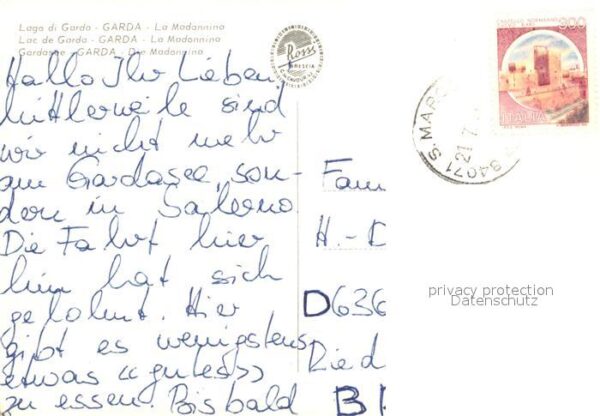 Lago di Garda - GARDA - La Madonnina
Lac de Garda - GARDA - La Madonnina
Gardasee - GARDA - Die Madonnina
Rossi
BRESCIA
CASTELLO NORMANNO
BARI
300
ITALIA
84071 S. MARC
21.7.
Hallo Ihr Lieben
mittlerweile sind
wir nicht mehr
am Gardasee, son-
dern in Salerno.
Die Fahrt hier
hin hat sich
gelohnt. Hier
gibt es wenigstens
etwas «gutes»
zu essen. Bis bald
Fam
H.-D
D636
Ried
BR
privacy protection
Datenschutz